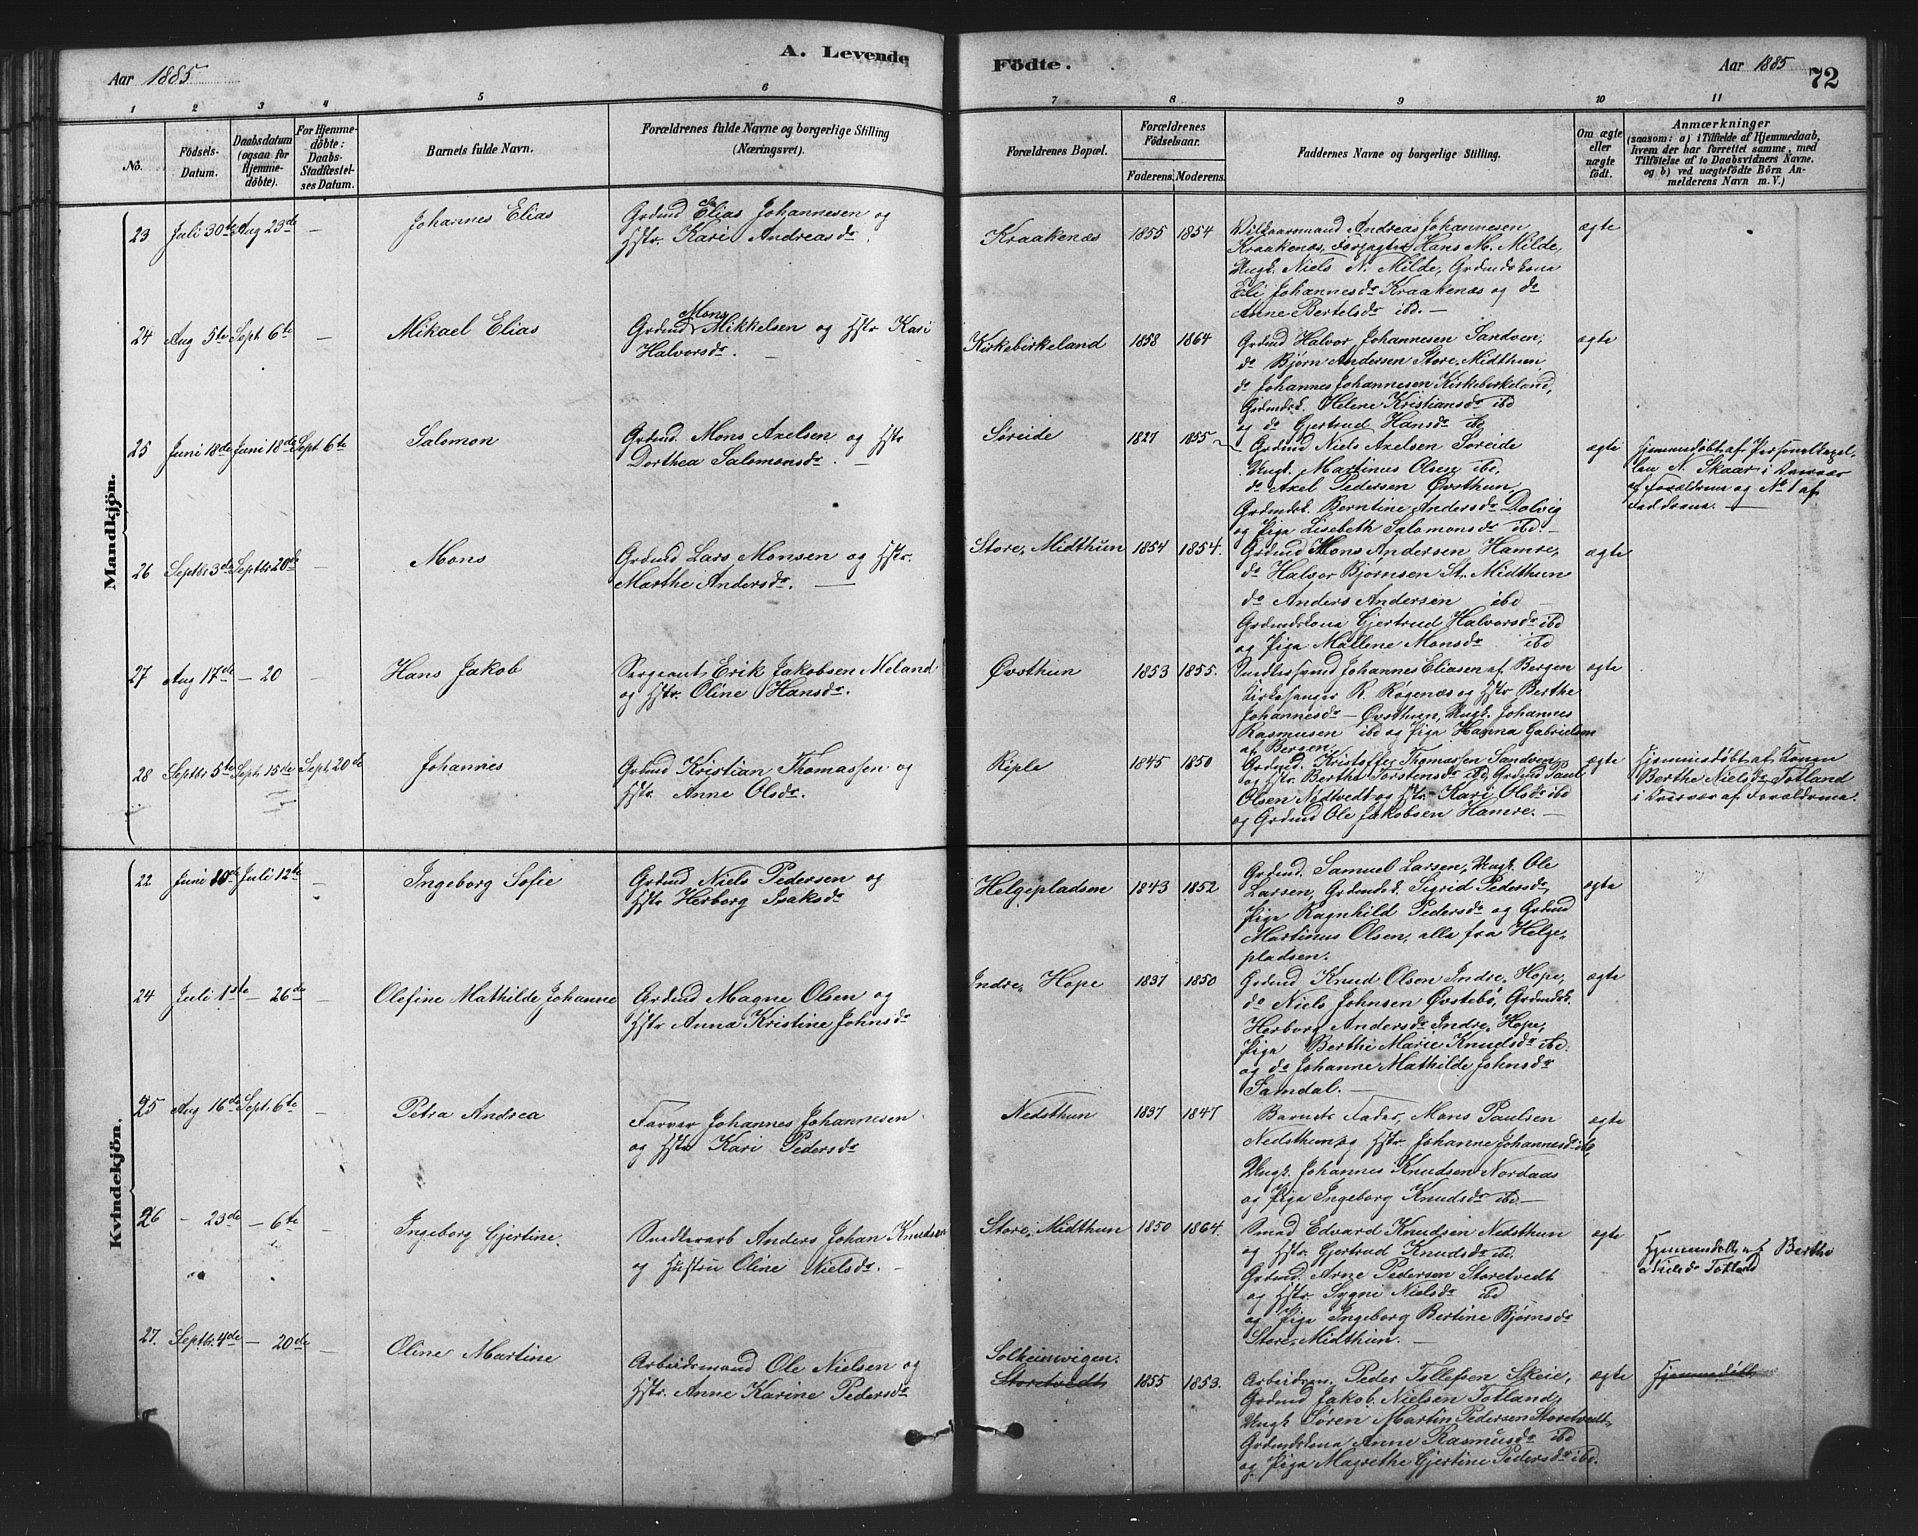 Aar 1885
A. Levende
Födte.
Aar 1885
72
1 2 3 4 5 6 7 8 9 10 11
No.
Födsels-
Datum.
Daabsdatum
(ogsaa for
Hjemme-
döbte).
For Hjemme-
döbte:
Daabs-
Stadfæstel-
ses Datum.
Barnets fulde Navn.
Forældrenes fulde Navne og borgerlige Stilling
(Næringsvei).
Forældrenes Bopæl.
Forældrenes
Födselsaar.
Faderens. Moderens.
Faddernes Navne og borgerlige Stilling.
Om ægte
eller
uægte
födt.
Anmærkninger
(saasom: a) i Tilfælde af Hjemmedaab,
hvem der har forrettet samme, med
Tilföielse af to Daabsvidners Navne.
og b) ved uægtefödte Börn An-
melderens Navn m. V.)
Mandkjön.
23 Juli 30te Aug 23de —
Johannes Elias
Grdmd Elias Johannesen og
Hstr. Kari Andreasdr.
Kraakenæs 1855 1854
Vilkaarmand Andreas Johannesen
Kraakenæs, Forpagter Hans M. Milde,
Ungk. Niels N. Milde, Grdmdskona
Eli Johannesdr Kraakenæs og do
Anne Bertelsdr ibd. —
ægte
24 Aug 5te Sept 6te —
Mikael Elias
Grdmd Mons Mikkelsen og Hstr Kari
Halvorsdr. —
Kirkebirkeland 1858 1864
Grdmd Halvor Johannesen Sandven,
do Bjørn Andersen Store Midthun
do Johannes Johannesen Kirkebirkeland,
Grdmdsk. Helene Kristiansdr ibd
og do Gjertrud Hansdr ibd
ægte
25 Juni 18de Juni 18de Sept 6te
Salomon
Grdmd. Mons Axelsen og Hstr
Dorthea Salomonsdr. —
Søreide 1827 1855
Grdmd Niels Axelsen Søreide
Ungk. Martinus Olsen ibd.
do Axel Pedersen Øvsthun,
Grdmdsk. Berntine Andersdr Dolvig
og Pige Lisebeth Salomonsdr ibd. —
ægte
Hjemmedøbt af
N. Skaar i Overvær
af Forældrene og No 1 af
Fadderne. —
26 Septbr 3de Septbr. 20de —
Mons
Grdmd Lars Monsen og Hstr.
Marthe Andersdr. —
Store Midthun 1854 1854.
Grdmd Mons Andersen Hamre,
do Halvor Bjørnsen St. Midthun
do Anders Andersen ibd —
Grdmdskona Gjertrud Halvorsdr ibd
og Pige Mallene Monsdr ibd
ægte
27 Aug 17de — 20 —
Hans Jakob
Sergeant Erik Jakobsen Moland
og Hstr. Oline Hansdr.
Øvsthun 1853 1855.
Snedkersvend Johannes Eliasen af Bergen
Kirkesanger R. Røgenæs og Hstr Berthe
Johannesdr — Øvsthun, Ungk. Johannes
Rasmusen ibd og Pige Hanna Gabrielsen
af Bergen.
ægte
28 Septbr 5te Sept. 15de Sept. 20de
Johannes
Grdmd Kristian Thomassen og
Hstr. Anne Olsdr.
Riple 1845 1850
Grdmd. Kristoffer Thomassen Sandven
og Hstr. Berthe Torstensdr ibd, Grdmd Paul
Olsen Nødtvedt og Hstr. Kari Olsdr ibd
og Grdmd Ole Jakobsen Hamre. —
ægte
Hjemmedøbt af Konen
Berthe Nielsdr Totland
i Overvær af Forældrene.
Kvindekjön.
22 Juni 10de Juli 12te —
Ingeborg Sofie
Grdmd Niels Pedersen og
Hstr Herborg Isaksdr
Helgepladsen 1843 1852
Grdmd. Samuel Larsen, Ungk. Ole
Larsen, Grdmdsk. Sigrid Pedersdr,
Pige Ragnhild Pedersdr og Grdmd
Martinus Olsen, alle fra Helge-
pladsen.
ægte
24 Juli 1ste — 26de —
Olefine Mathilde Johanne
Grdmd Magne Olsen og
Hstr Anna Kristine Johnsdr
Indre Hope 1837 1850
Grdmd Knud Olsen Indre Hope,
do Niels Johnsen Øvstebø, Grdmdsk.
Herborg Andersdr Indre Hope,
Pige Berthe Marie Knudsdr ibd.
og do Johanne Mathilde Johnsdr
Samdal. —
ægte
25 Aug 16de Sept. 6te —
Petra Andrea
Farver Johannes Johannesen
og Hstr Kari Pedersdr
Nedsthun 1837 1847
Barnets Fader, Mons Paulsen
Nedsthun og Hstr. Johanne Johannesdr ibd,
Ungk. Johannes Knudsen Nordaas
og Pige Ingeborg Knudsdr ibd —
ægte
26 — 23de — 6te —
Ingeborg Gjertine.
Snedkerarb Anders Johan Knudsen
og Hustru Oline Nielsdr. —
Store Midthun 1850 1864.
Smed Edvard Knudsen Nedsthun
og Hstr. Gjertrud Knudsdr ibd
Grdmd. Arne Pedersen Storetvedt
og Hstr. Sygni Nielsdr ibd
og Pige Ingeborg Bertine Bjørnsdr
Store Midthun. —
ægte
Hjemmedøbt af Berthe
Nielsdr Totland
27. Septbr. 4de — 20de —
Oline Martine
Arbeidsmand Ole Nielsen og
Hstr. Anne Karine Pedersdr
Solheimsvigen.
Storetvedt 1855 1853.
Arbeidsm. Peder Tollefsen Skeie,
Grdmd Jakob Nielsen Totland,
Ungk Søren Martin Pedersen Storetvedt,
Grdmdskona Anne Rasmusdr ibd
og Pige Magrethe Gjertine Pedersdr ibd.
ægte
Hjemmedøbt